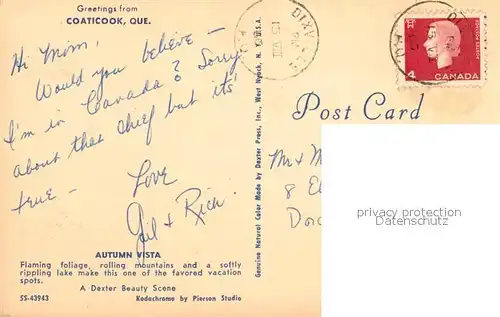 Greetings from
COATICOOK, QUE.
Hi Mom,
Would you believe -
I'm in Canada? Sorry
about that chief but its'
true -
Love
Jil + Rich.
AUTUMN VISTA
Flaming foliage, rolling mountains and a softly
rippling lake make this one of the favored vacation
spots.
A Dexter Beauty Scene
SS-43943
Kodachrome by Pierson Studio
Genuine Natural Color Made by Dexter Press, Inc., West Nyack, N. Y., U.S.A.
DIXV
4
CANADA
Post Card
Mr + M
8 El
Dor
privacy protection
Datenschutz